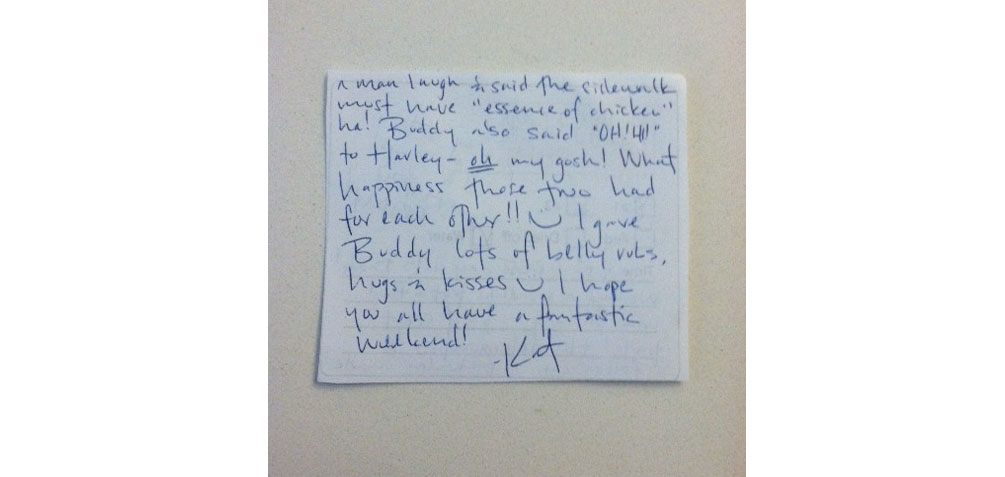 a man laugh & said the sidewalk
must have "essence of chicken"
ha! Buddy also said "OH! HI!"
to Harley - oh my gosh! What
happiness those two had
for each other!! I gave
Buddy lots of belly rubs,
hugs & kisses I hope
you all have a fantastic
weekend!
-Kat